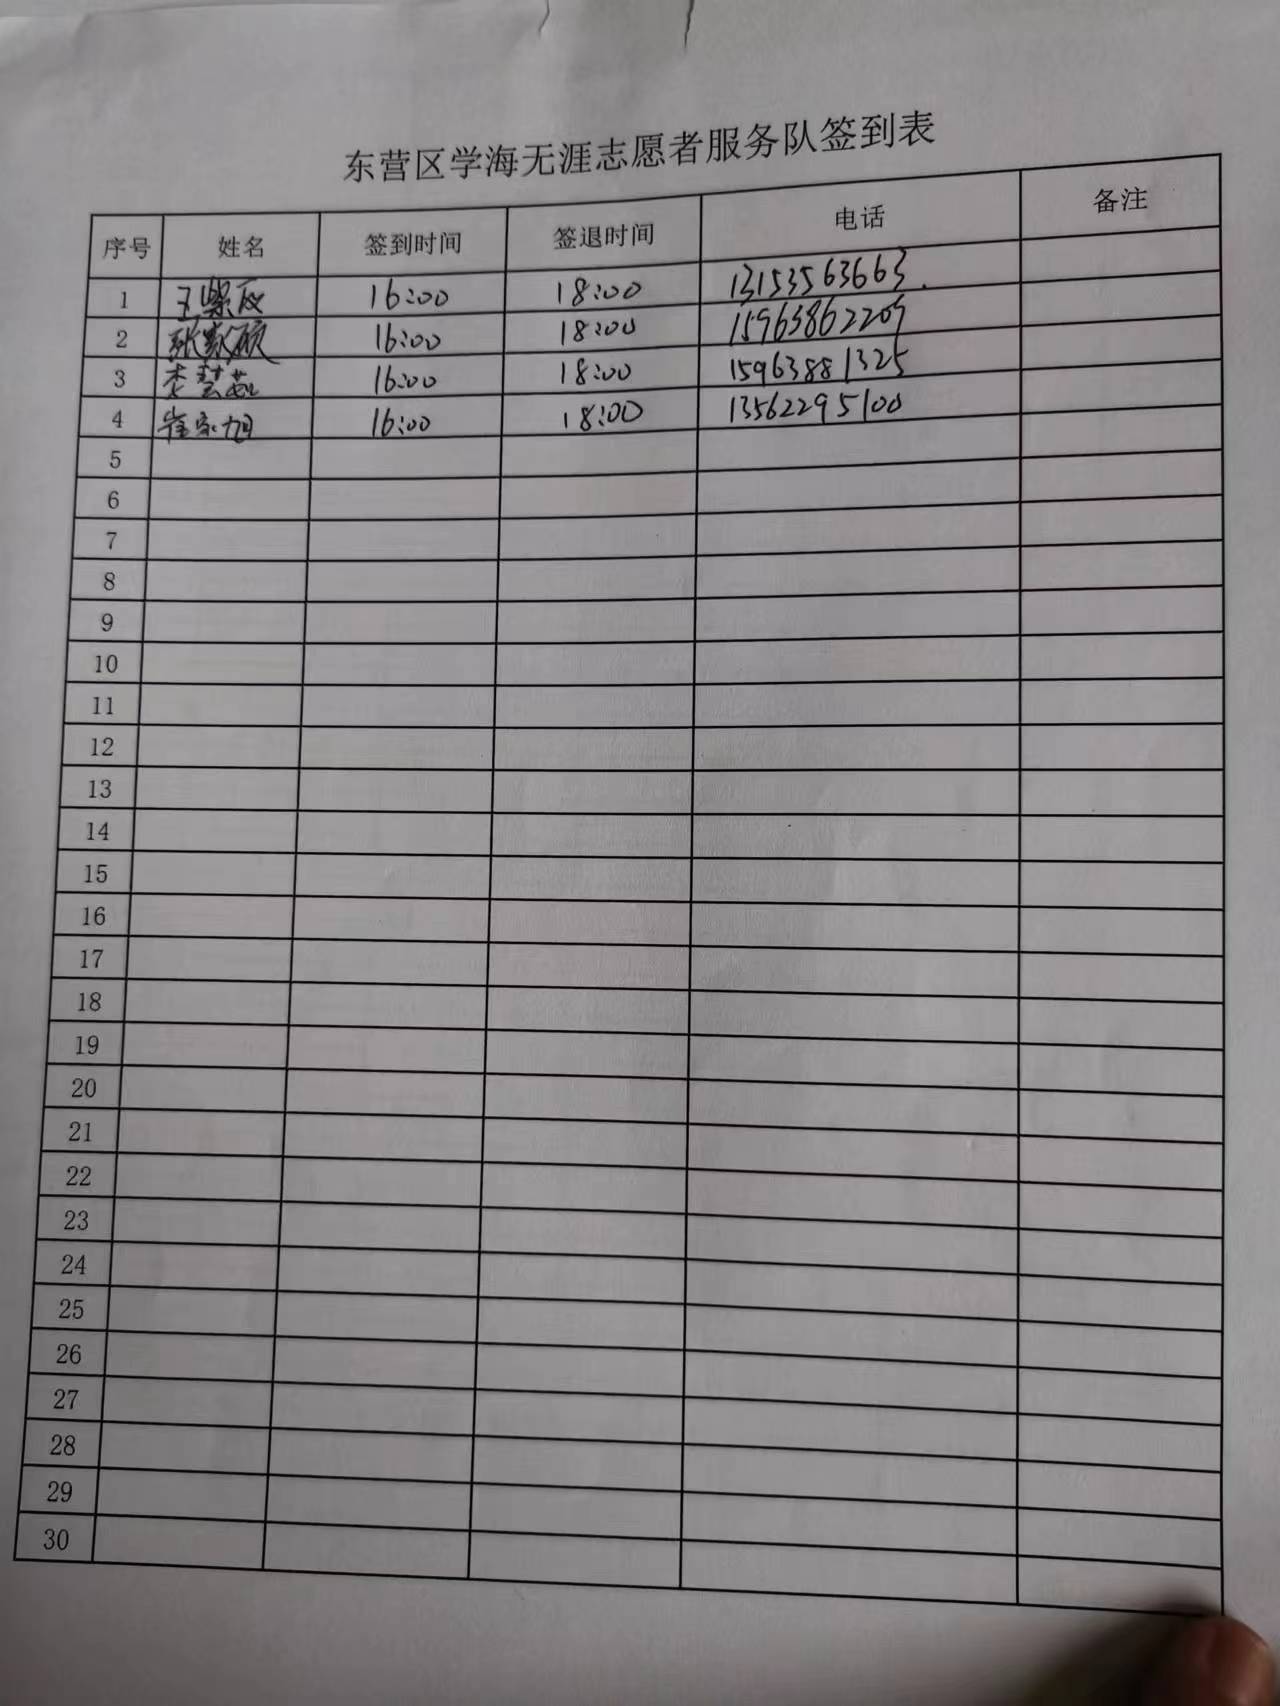 东营区学海无涯志愿者服务队签到表
序号 姓名 签到时间 签退时间 电话 备注
1 王紫辰 16:00 18:00 13153563663.
2 张家硕 16:00 18:00 15963862209
3 李慧茹 16:00 18:00 15963881325
4 崔家旭 16:00 18:00 13562295100
5
6
7
8
9
10
11
12
13
14
15
16
17
18
19
20
21
22
23
24
25
26
27
28
29
30